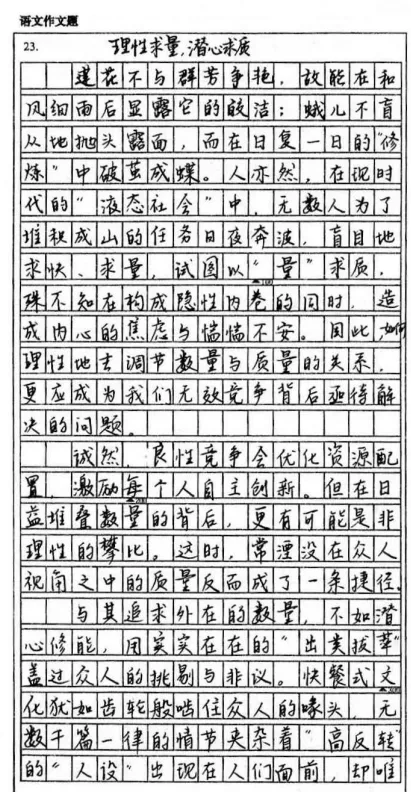 语文作文题
23.
理性求量,潜心求质
莲花不与群芳争艳，故能在和
风细雨后显露它的皎洁；蛾儿不盲
从地抛头露面，而在日复一日的“修
炼”中破茧成蝶。人亦然，在现时
代的“液态社会”中，无数人为了
堆积成山的任务日夜奔波，盲目地
求快、求量，试图以“量”求质，
殊不知在构成隐性内卷的同时，造
成内心的焦虑与惴惴不安。因此，如何
理性地去调节数量与质量的关系，
更应成为我们无效竞争背后亟待解
决的问题。
诚然，良性竞争会优化资源配
置，激励每个人自主创新。但在日
益堆叠数量的背后，更有可能是非
理性的攀比。这时，常湮没在众人
视角之中的质量反而成了一条捷径。
与其追求外在的数量，不如潜
心修能，用实实在在的“出类拔萃”
盖过众人的挑剔与非议。快餐式文
化犹如齿轮般啮住众人的喙头，无
数千篇一律的情节夹杂着“高反转”
的“人设”出现在人们面前，却唯